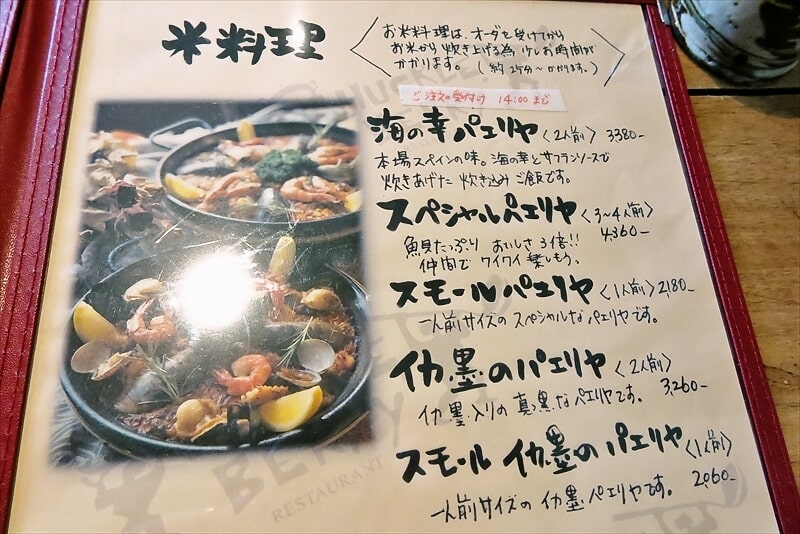 米料理
お米料理は、オーダを受けてから
お米から炊き上げる為、少しお時間が
かかります。(約25分〜かかります。)
ご注文の受付け 14:00まで
海の幸パエリヤ〈2人前〉3380-
本場スペインの味。海の幸とサフランソースで
炊きあげた 炊き込みご飯です。
スペシャルパエリヤ〈3〜4人前〉
4,360-
魚貝たっぷり おいしさ3倍!!
仲間でワイワイ楽しもう。
スモールパエリヤ〈1人前〉2,180-
一人前サイズのスペシャルなパエリヤです。
イカ墨のパエリヤ〈2人前〉
3,260-
イカ墨入りの真っ黒なパエリヤです。
スモールイカ墨のパエリヤ〈1人前〉
2,060-
一人前サイズのイカ墨パエリヤです。
RESTAURANT